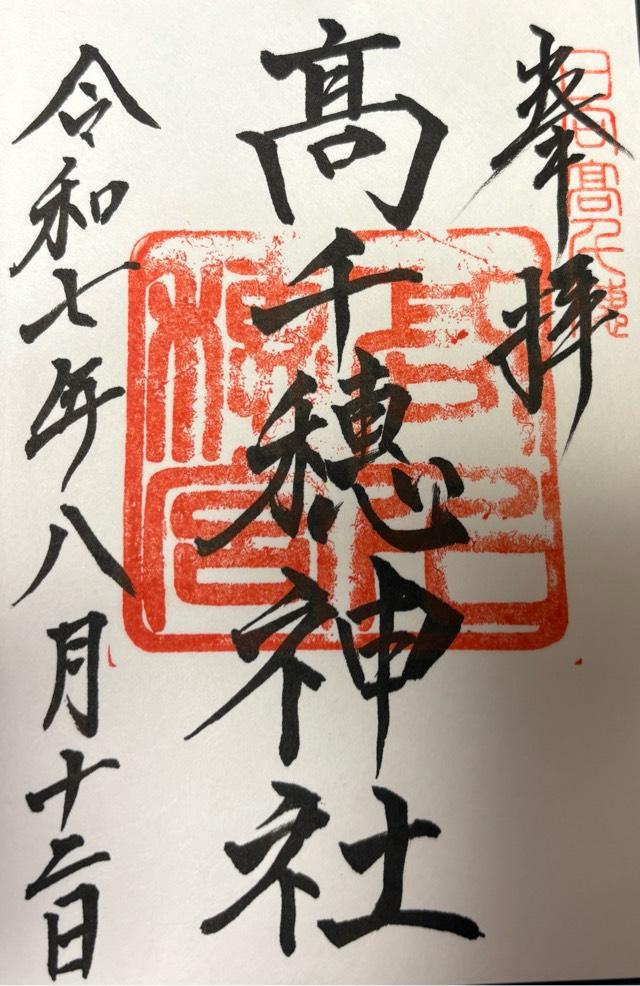 奉拝
日向高千穂
髙千穂神社
令和七年八月十二日